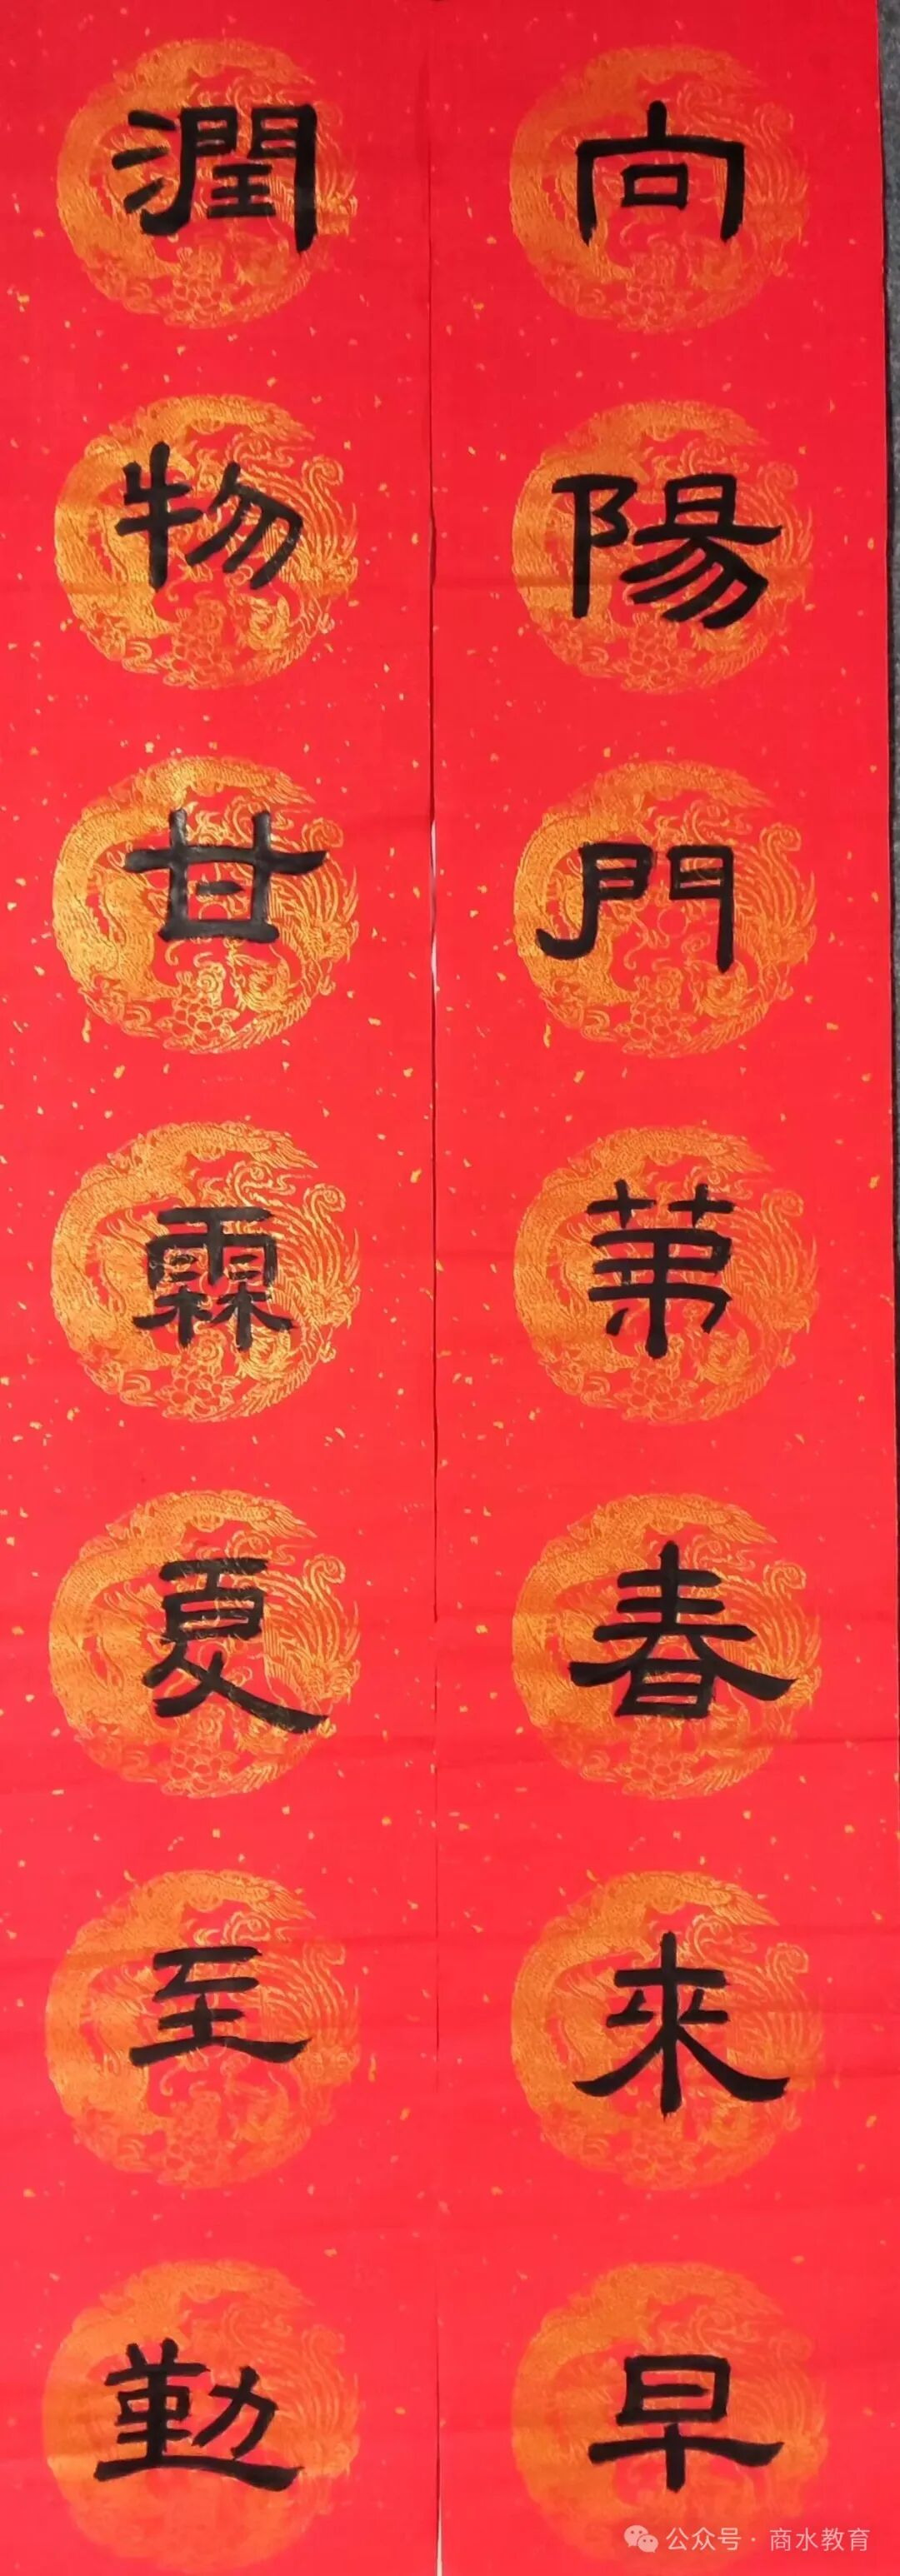 向陽門苐春來早
潤物甘霖夏至勤
公众号·商水教育